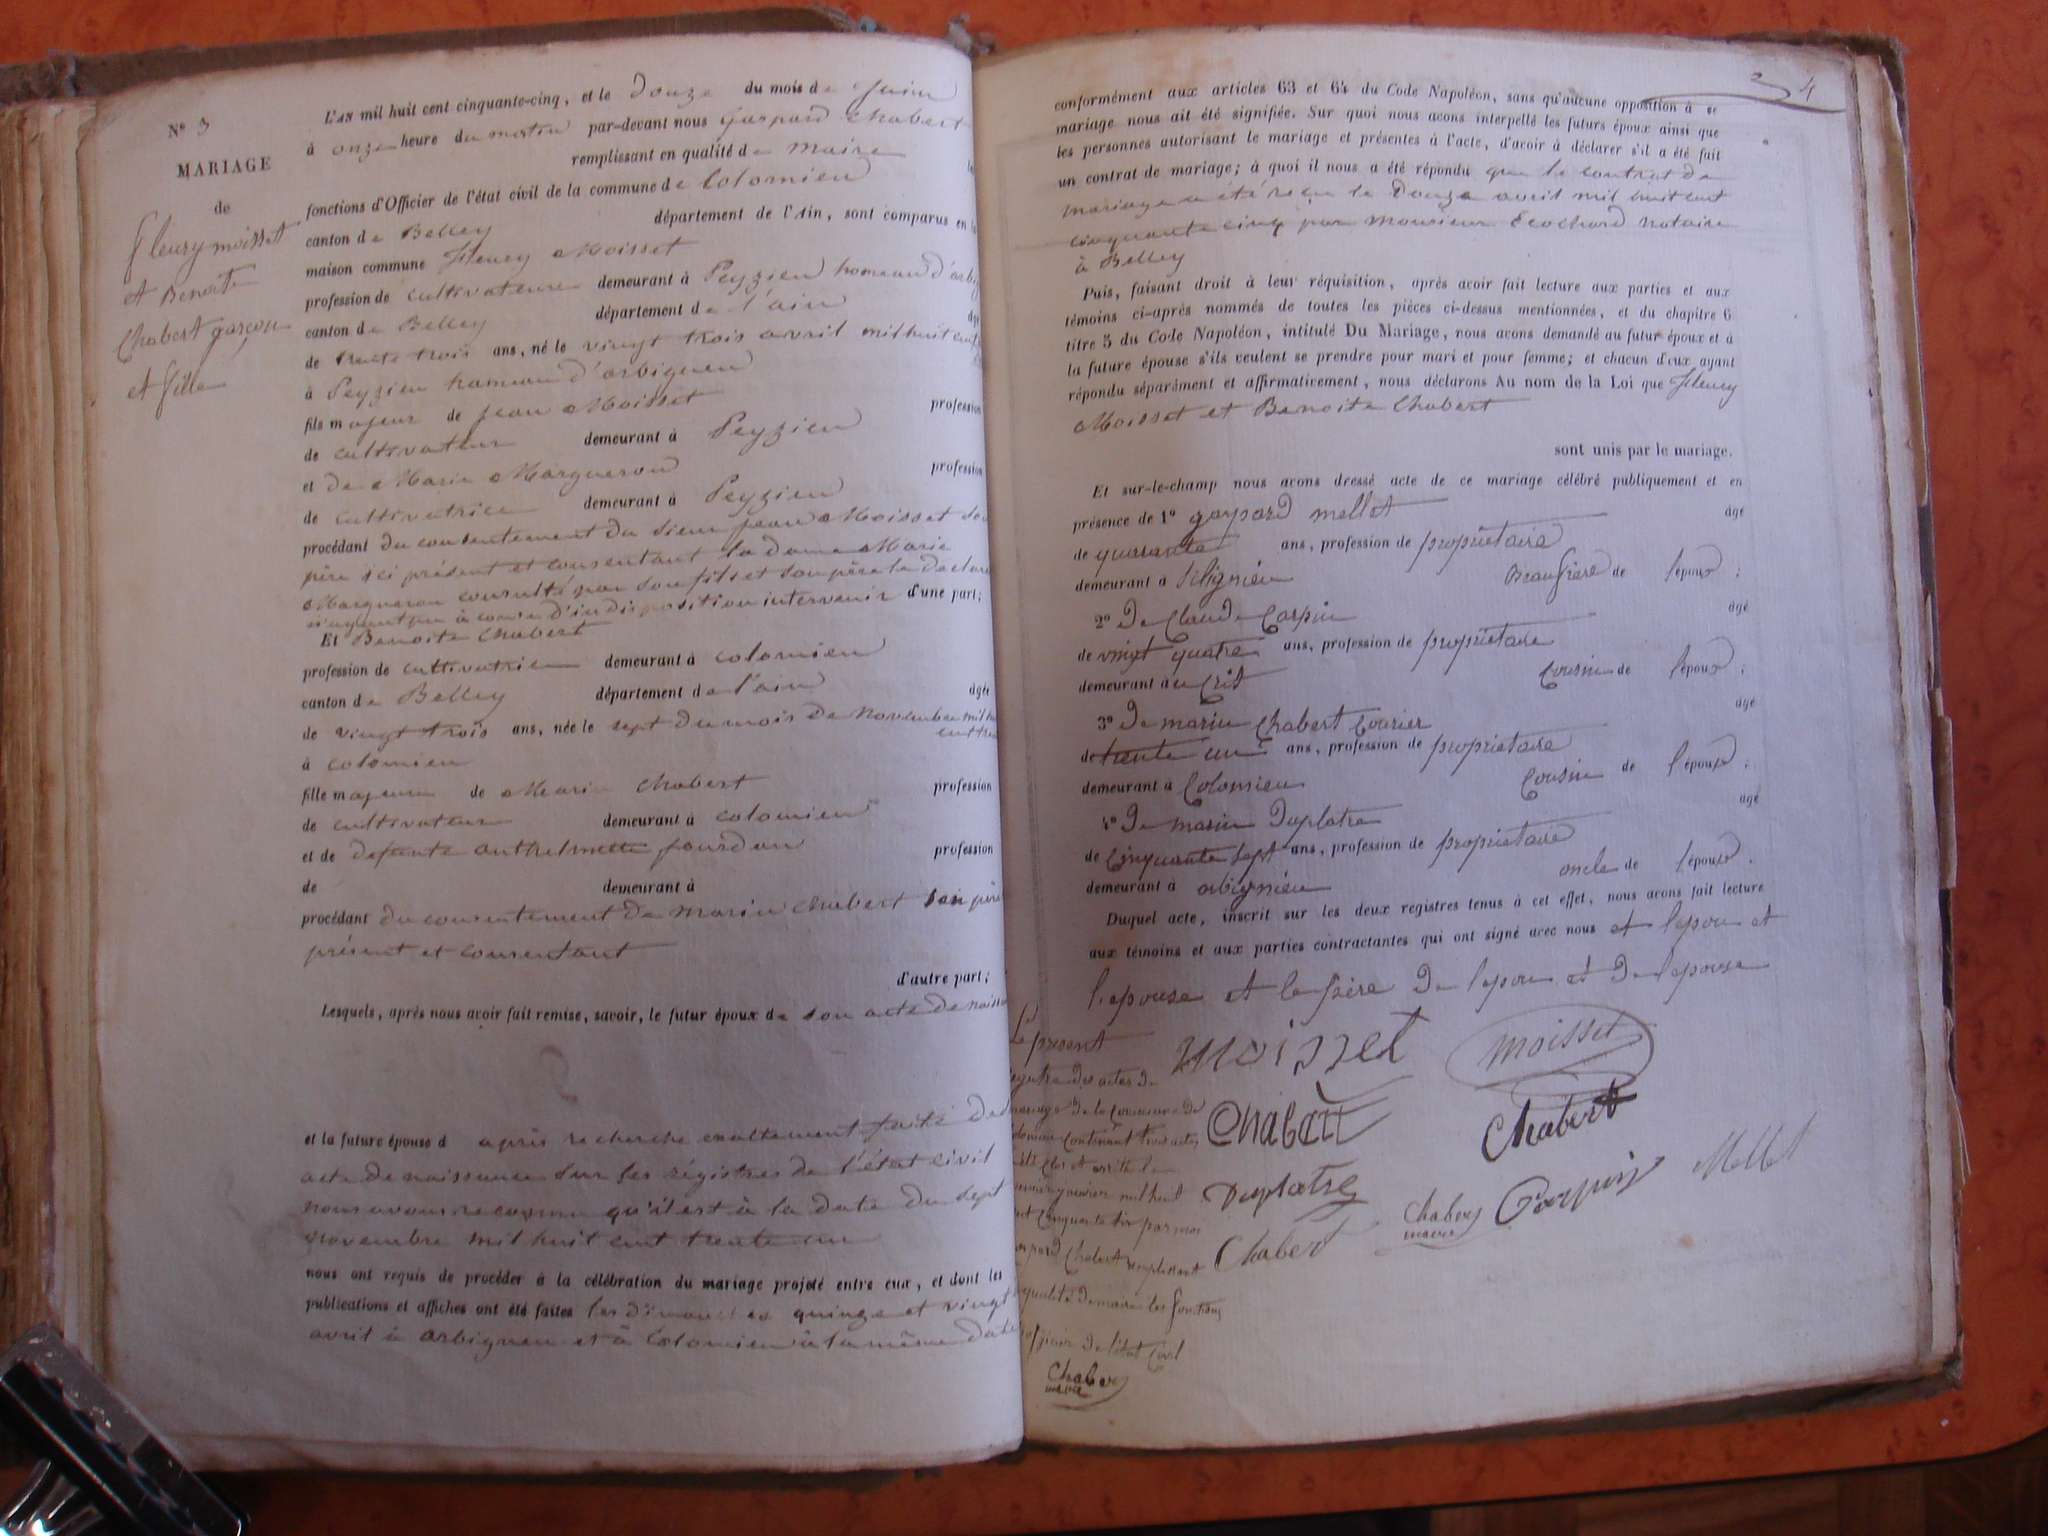 N° 3
MARIAGE
de
fleury moisset
et Benoite
Chabert garçon
et fille
L'AN mil huit cent cinquante-cinq, et le douze du mois de juin
à onze heure du matin par-devant nous Gaspard Chabert
remplissant en qualité de maire les
fonctions d'Officier de l'état civil de la commune de Colomieu
canton de Belley département de l'Ain, sont comparus en la
maison commune fleury Moisset
profession de cultivateur demeurant à Peyzieu hameau d'arbig
canton de Belley département de l'ain âgé
de trente trois ans, né le vingt trois avril mil huit cent
à Peyzieu hameau d'arbigneu
fils majeur de jean Moisset profession
de cultivateur demeurant à Peyzieu
et de Marie Margueron profession
de cultivatrice demeurant à Peyzieu
procédant du consentement du sieur jean Moisset son
père ici présent et consentant la dame Marie
Margueron consulté par son fils et son père le declare
n'ayant pu à cause d'indisposition intervenir d'une part;
Et Benoite Chabert
profession de cultivatrice demeurant à colomieu
canton de Belley département de l'ain âgée
de vingt trois ans, née le sept du mois de novembre mil hui
cent tren
à colomieu
fille majeure de Marin Chabert profession
de cultivateur demeurant à colomieu
et de defunte anthelmette jourdan profession
de demeurant à
procédant du consentement de marin chabert son père
présent et consentant
d'autre part;
Lesquels, après nous avoir fait remise, savoir, le futur époux de son acte de naiss
et la future épouse d après recherche exactement faite de
acte de naissance sur les régistres de l'état civil
nous avons reconnu qu'il est à la date du sept
novembre mil huit cent trente un
nous ont requis de procéder à la célébration du mariage projeté entre eux, et dont les
publications et affiches ont été faites les dimanches quinze et vingt
avril à arbigneu et à Colomieu à la même date
4
conformément aux articles 63 et 64 du Code Napoléon, sans qu'aucune opposition à ce
mariage nous ait été signifiée. Sur quoi nous avons interpellé les futurs époux ainsi que
les personnes autorisant le mariage et présentes à l'acte, d'avoir à déclarer s'il a été fait
un contrat de mariage; à quoi il nous a été répondu que le contrat de
mariage a été reçu le douze avril mil huit cent
cinquante cinq par monsieur Ecochard notaire
à Belley
Puis, faisant droit à leur réquisition, après avoir fait lecture aux parties et aux
témoins ci-après nommés de toutes les pièces ci-dessus mentionnées, et du chapitre 6
titre 5 du Code Napoléon, intitulé Du Mariage, nous avons demandé au futur époux et à
la future épouse s'ils veulent se prendre pour mari et pour femme; et chacun d'eux ayant
répondu séparément et affirmativement, nous déclarons Au nom de la Loi que fleury
Moisset et Benoite Chabert
sont unis par le mariage.
Et sur-le-champ nous avons dressé acte de ce mariage célébré publiquement et en
présence de 1° gaspard mellet âgé
de quarante ans, profession de propriétaire
demeurant à Slignieu Beaufrère de l'époux;
2° De Claude Carpin âgé
de vingt quatre ans, profession de propriétaire
demeurant à Cousin de l'époux;
3° De marin Chabert Courier âgé
de trente un ans, profession de propriétaire
demeurant à Colomieu Cousin de l'époux;
4° De marin Duplatre âgé
de Cinquante sept ans, profession de propriétaire
demeurant à arbignieu oncle de l'époux.
Duquel acte, inscrit sur les deux registres tenus à cet effet, nous avons fait lecture
aux témoins et aux parties contractantes qui ont signé avec nous et lepou et
lepouse et le père De lepou et De lepouse
moisset moisset
Chabert Chabert
Duplatre Chabert maire Carpin Mellet
Chabert
Le présent
registre des actes de
mariage de la Commune de
Colomieu contenant trois actes
été clos et arrêté le
janvier mil huit
cent cinquante six par moi
gaspard Chabert remplissant
qualité de maire les fonctions
officier de l'état Civil
Chabert
maire